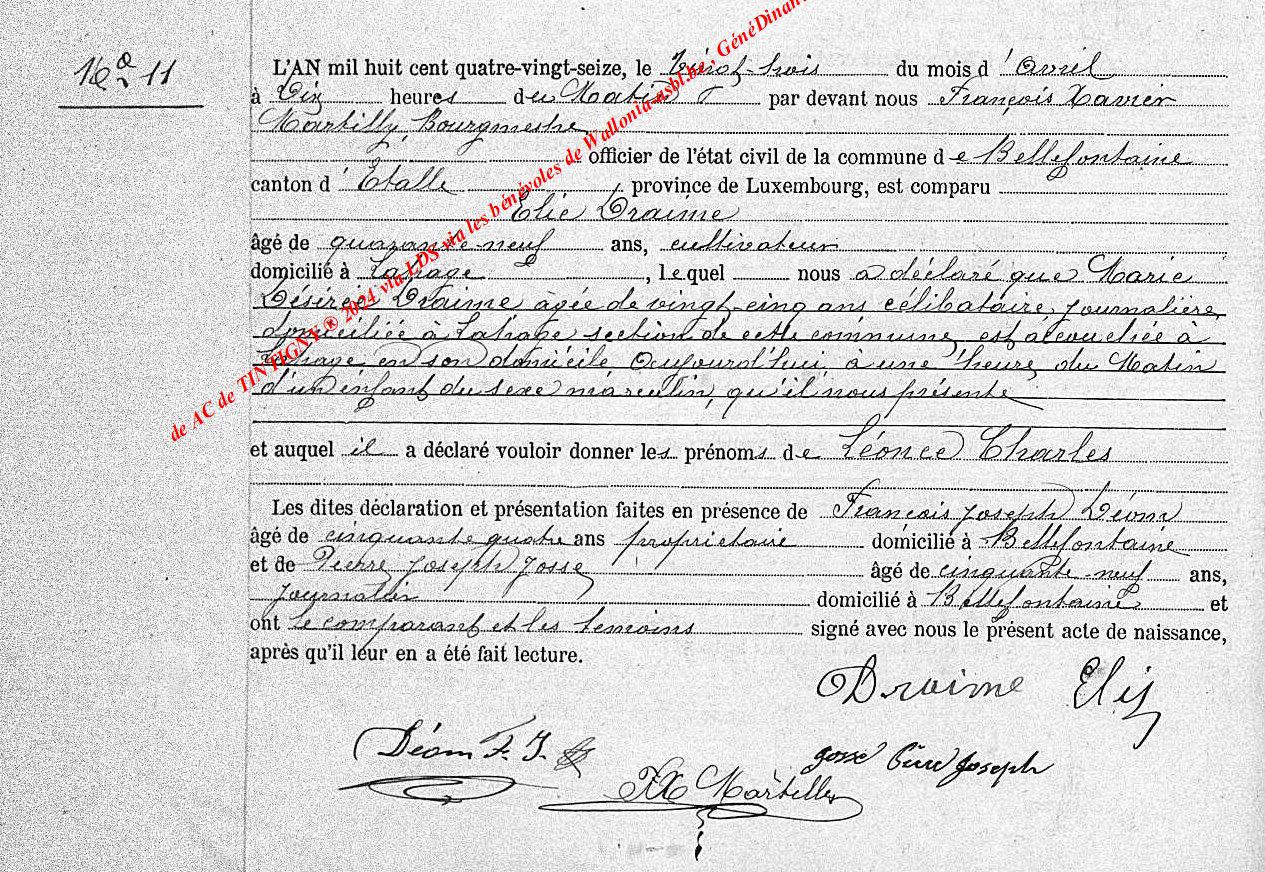 Nº 11
L'AN mil huit cent quatre-vingt-seize, le Vingt-trois du mois d'Avril
à Dix heures du Matin par devant nous François Xavier
Martilly, Bourgmestre
officier de l'état civil de la commune de Bellefontaine
canton d'Etalle, province de Luxembourg, est comparu
Elie Draime
âgé de quarante-neuf ans, cultivateur
domicilié à Lahage, lequel nous a déclaré que Marie
Désirée Draime âgée de vingt-cinq ans célibataire, journalière,
domiciliée à Lahage section de cette commune, est accouchée à
Lahage, en son domicile Aujourd'hui, à une heure du Matin
d'un enfant du sexe masculin, qu'il nous présente
et auquel il a déclaré vouloir donner les prénoms de Léonce Charles
Les dites déclaration et présentation faites en présence de François Joseph Déom
âgé de cinquante quatre ans propriétaire domicilié à Bellefontaine
et de Pierre Joseph Josse âgé de cinquante-neuf ans,
journalier domicilié à Bellefontaine et
ont le comparant et les témoins signé avec nous le présent acte de naissance,
après qu'il leur en a été fait lecture.
Draime Elie
Déom F. J.
josse Pierre joseph
FX Martilly
de AC de TINTIGNY ® 2024 via LDS via les bénévoles de Wallonia-asbl.be, GénéDinant